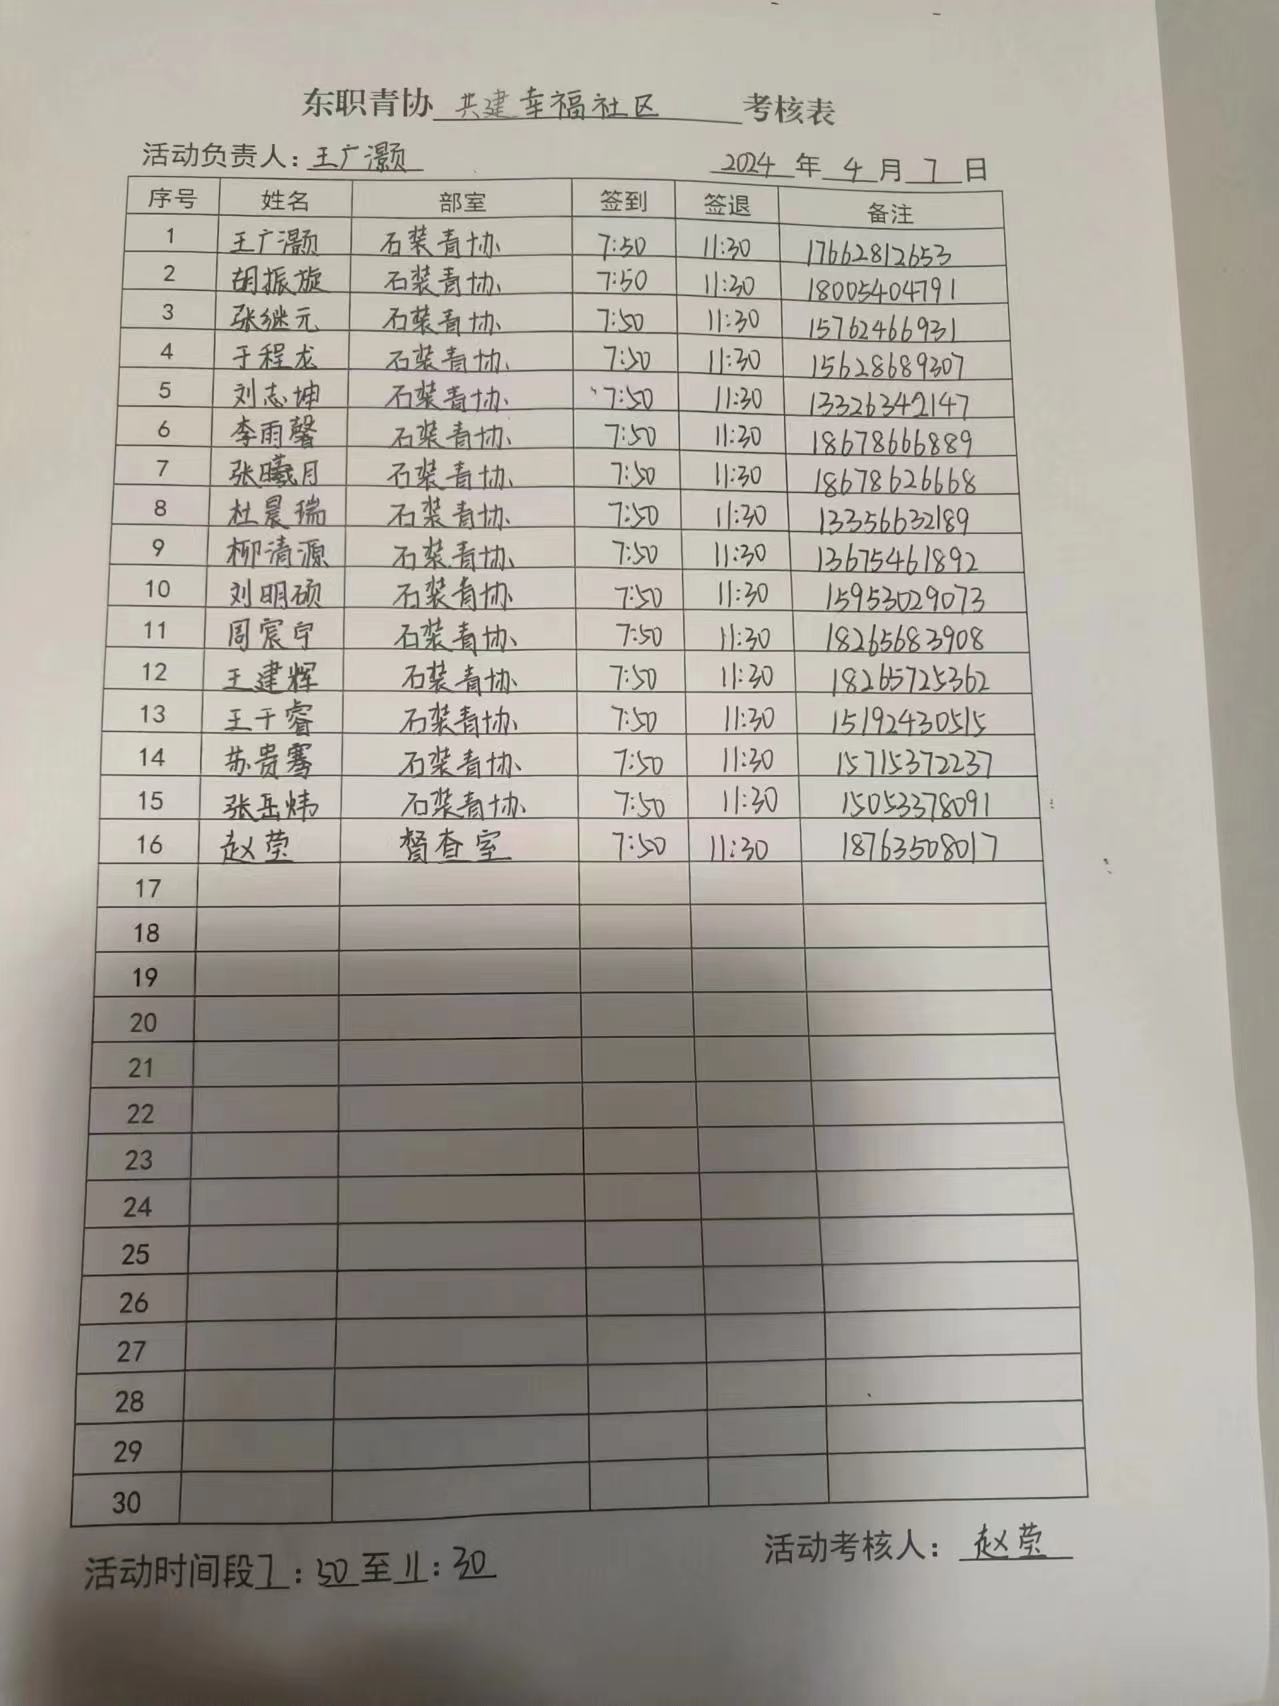 东职青协 共建幸福社区 考核表
活动负责人：王广灏 2024 年 4 月 7 日
序号 姓名 部室 签到 签退 备注
1 王广灏 石装青协 7:50 11:30 17662812653
2 胡振旋 石装青协 7:50 11:30 18005404791
3 张继元 石装青协 7:50 11:30 15762466931
4 于程龙 石装青协 7:50 11:30 15628689307
5 刘志坤 石装青协 7:50 11:30 13326342147
6 李雨馨 石装青协 7:50 11:30 18678666889
7 张曦月 石装青协 7:50 11:30 18678626668
8 杜晨瑞 石装青协 7:50 11:30 13356632189
9 柳清源 石装青协 7:50 11:30 13675461892
10 刘明硕 石装青协 7:50 11:30 15953029073
11 周宸宁 石装青协 7:50 11:30 18265683908
12 王建辉 石装青协 7:50 11:30 18265725362
13 王千睿 石装青协 7:50 11:30 15192430515
14 苏贵骞 石装青协 7:50 11:30 15715372237
15 张岳炜 石装青协 7:50 11:30 15053378091
16 赵莹 督查室 7:50 11:30 18763508017
17
18
19
20
21
22
23
24
25
26
27
28
29
30
活动时间段 7：50 至 11：30 活动考核人：赵莹